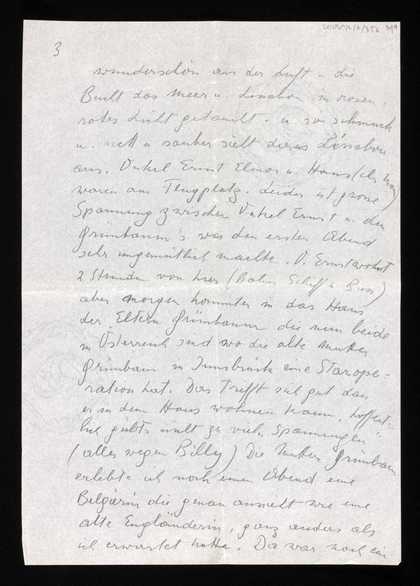 3
wunderschön aus der Luft u. die
Bucht das Meer u. Lissabon in rosen
rotes Licht getaucht. u. so schmuck
u. nett u sauber sieht dieses Lissabon
aus. Onkel Ernst Elmar u. Hans
waren am Flugplatz. Leider ist grosse
Spannung zwischen Onkel Ernst u. den
Grünbaum's was den ersten Abend
sehr ungemütlich machte. O. Ernst wohnt
2 Stunden von hier (Bahn Schiff u Bus)
aber morgen kommt er in das Haus
der Eltern Grünbaum die nun beide
in Österreich sind wo die alte Mutter
Grünbaum in Innsbruck eine Starope-
ration hat. Das trifft sich gut dass
er in dem Haus wohnen kann. Hoffent-
lich gibts nicht zu viele Spannungen
(alles wegen Billy) Die Mutter Grünbaum
erlebte ich noch einen Abend eine
Belgierin die genau aussieht wie eine
alte Engländerin, ganz anders als
ich erwartet hatte. Da war noch ein